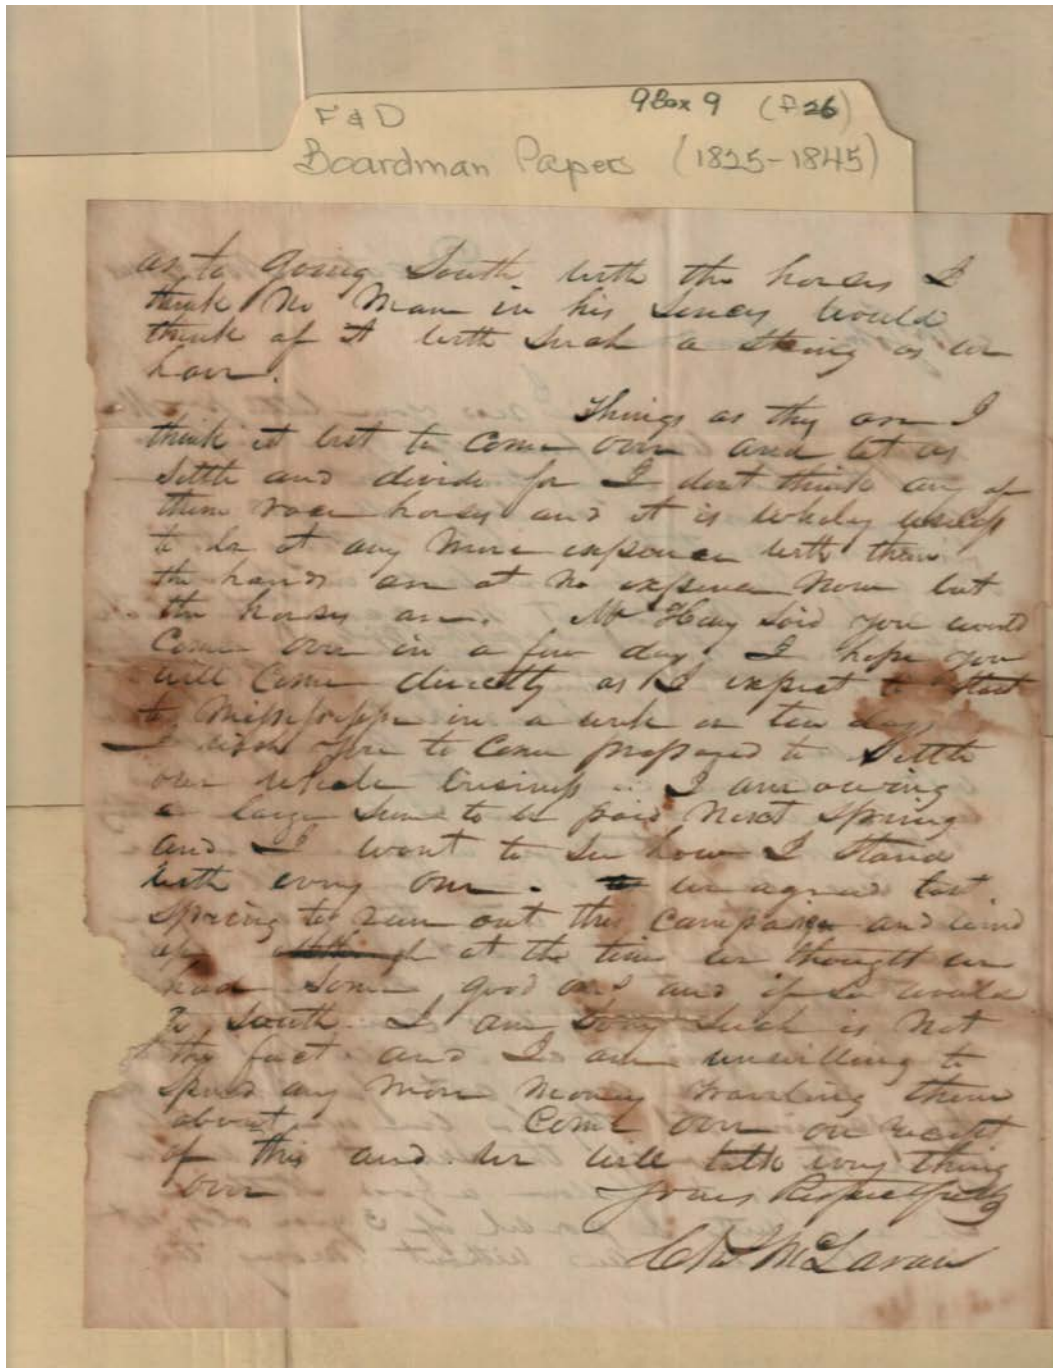 F & D
9 Box 9 (f 26)
Boardman Papers (1825-1845)
as to going South with the horses I
think No Man in his Sences would
think of It with Such a String as we
have.
Things as they are I
think it best to Come over and let us
Settle and divide for I dont think any of
them race horses and it is wholy useless
to be at any More expence with them
the hands are at no expence Now but
the horses are. Mr Hay Said you would
Come over in a few days. I hope you
will Come directly as I expect to Start
to Mississippi in a week or ten days
I wish you to Come prepared to Settle
our whole business .. I am owing
a large Sum to be paid Next Spring
and I want to See how I Stand
with every one. we agreed last
Spring to run out this Campaign and wind
up at the time we thought we
had Some good ones and if So would
go South. I am Sory Such is Not
the fact. and I am unwilling to
Spend any More Money traviling them
about. Come over on receipt
of this and we will talk every thing
over Yours Respectfully
Chs McLaran